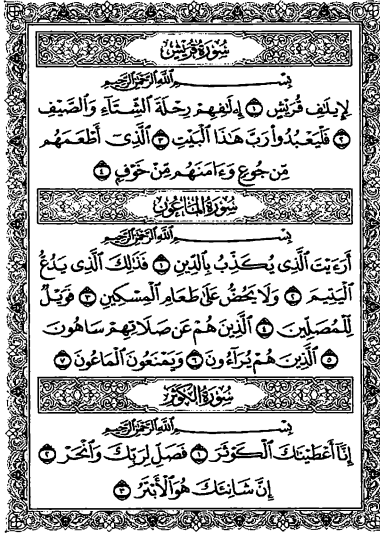 سُورَةُ قُرَيْشٍ
بِسْمِ اللَّهِ الرَّحْمَٰنِ الرَّحِيمِ
لِإِيلَٰفِ قُرَيْشٍ ۝١ إِۦلَٰفِهِمْ رِحْلَةَ ٱلشِّتَآءِ وَٱلصَّيْفِ
۝٢ فَلْيَعْبُدُوا۟ رَبَّ هَٰذَا ٱلْبَيْتِ ۝٣ ٱلَّذِىٓ أَطْعَمَهُم
مِّن جُوعٍ وَءَامَنَهُم مِّنْ خَوْفٍۭ ۝٤
سُورَةُ المَاعُونِ
بِسْمِ اللَّهِ الرَّحْمَٰنِ الرَّحِيمِ
أَرَءَيْتَ ٱلَّذِى يُكَذِّبُ بِٱلدِّينِ ۝١ فَذَٰلِكَ ٱلَّذِى يَدُعُّ
ٱلْيَتِيمَ ۝٢ وَلَا يَحُضُّ عَلَىٰ طَعَامِ ٱلْمِسْكِينِ ۝٣ فَوَيْلٌ
لِّلْمُصَلِّينَ ۝٤ ٱلَّذِينَ هُمْ عَن صَلَاتِهِمْ سَاهُونَ
۝٥ ٱلَّذِينَ هُمْ يُرَآءُونَ ۝٦ وَيَمْنَعُونَ ٱلْمَاعُونَ ۝٧
سُورَةُ الكَوْثَرِ
بِسْمِ اللَّهِ الرَّحْمَٰنِ الرَّحِيمِ
إِنَّآ أَعْطَيْنَٰكَ ٱلْكَوْثَرَ ۝١ فَصَلِّ لِرَبِّكَ وَٱنْحَرْ ۝٢
إِنَّ شَانِئَكَ هُوَ ٱلْأَبْتَرُ ۝٣